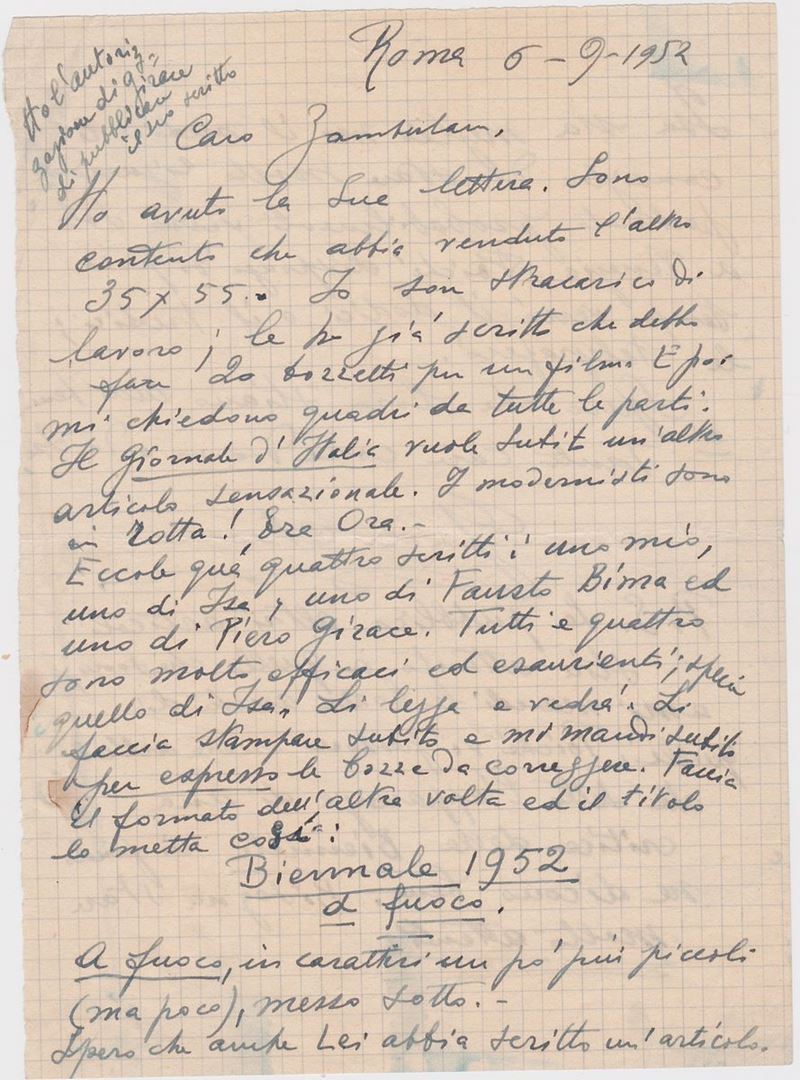 Roma 6-9-1952
Ho l'autoriz
zazione di
Girace
di pubblicare
il suo scritto
Caro Zamberlan,
Ho avuto la Sua lettera. Sono
contento che abbia venduto l'altro
35 x 55. Io son stracarico di
lavoro; le ho già scritto che debbo
fare 20 bozzetti per un film. E poi
mi chiedono quadri da tutte le parti.
Il Giornale d'Italia vuole subito un'altro
articolo sensazionale. I modernisti sono
in rotta! Era Ora.-
Eccole quà quattro scritti: uno mio,
uno di Isa, uno di Fausto Bima ed
uno di Piero Girace. Tutti e quattro
sono molto efficaci ed esaurienti; specie
quello di Isa. Li legga e vedrà. Li
faccia stampare subito e mi mandi subito
per espresso le bozze da correggere. Faccia
il formato dell'altra volta ed il titolo
lo metta così:
Biennale 1952
a fuoco.
A fuoco, in caratteri un po' più piccoli
(ma poco), messo sotto.-
Spero che anche Lei abbia scritto un'articolo.